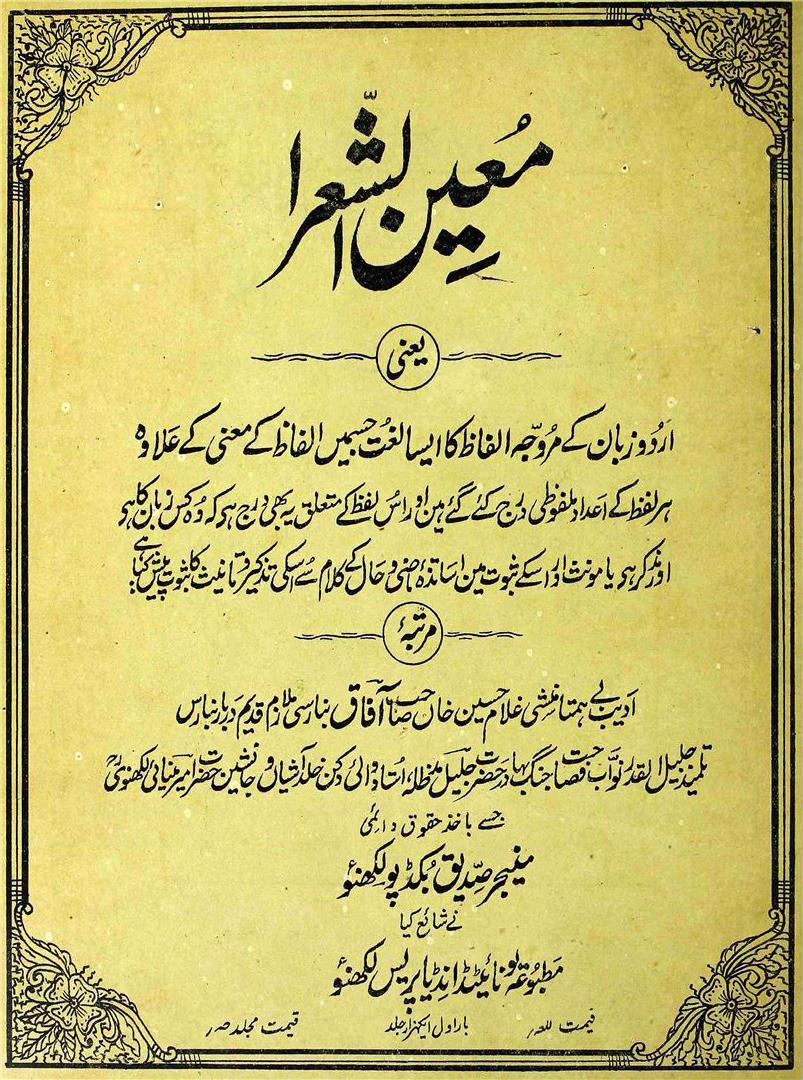 مُعین الشعرا
یعنی
اردو زبان کے مروّجہ الفاظ کا ایسا لغت جسمیں الفاظ کے معنی کے علاوہ
ہر لفظ کے اعداد ملفوظی درج کئے گئے ہین اور اس لفظ کے متعلق یہ بھی درج ہی کہ وہ کس زبان کا ہی
اور مذکر ہی یا مونث اور اسکے ثبوت مین اساتذۂ ماضی و حال کے کلام سے اسکی تذکیر و تانیث کا ثبوت پیش کیا ہے
مرتبۂ
ادیب بے ہمتا منشی غلام حسین خان صاحب آفاق بنارسی ملازم قدیم دربار بنارس
تلمیذ جلیل القدر نواب فصاحت جنگ بہادر حضرت جلیل مدظلہ، استاد والئ دکن خلد آشیان و جانشین حضرت امیر مینائی لکھنوی
جسے باخذ حقوق دائمی
منیجر صدیق بکڈپو لکھنؤ
نے شائع کیا
مطبوعہ یونائیٹڈ انڈیا پریس لکھنؤ
قیمت بار اول ایکہزار جلد قیمت مجلد